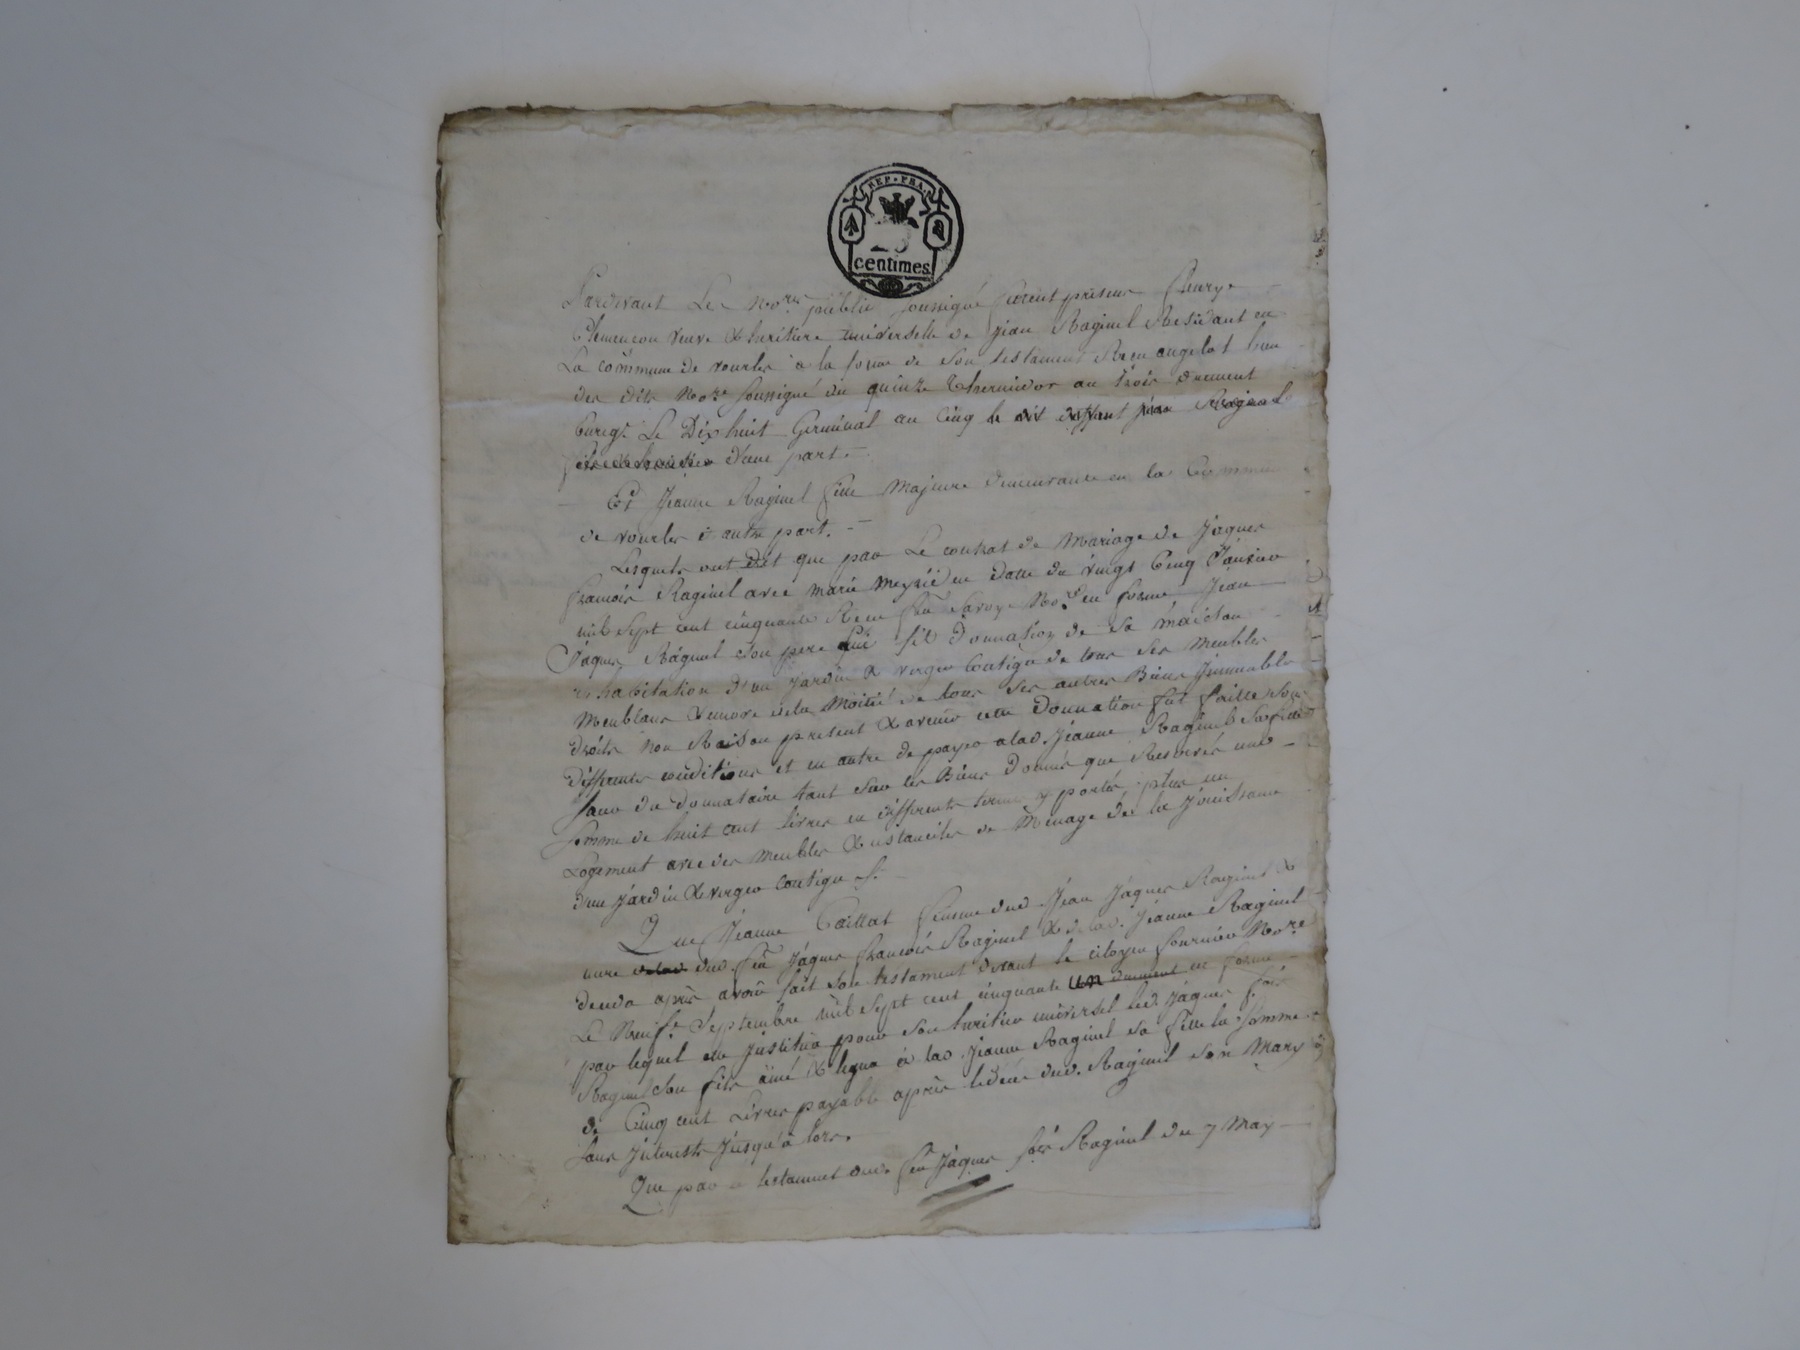 REP. FRA.
centimes
Pardevant Les No.res public soussigné furent présens fleurye
Clemencon veuve & heritiere universelle de Jean Raginel Residant en
La commune de vourles a la forme de son testament Recu angelot l'un
des dits No.re soussigné du quinze Thermidor an trois duement
Enreg.é Le Dix huit Germinal an Cinq
d'une part.
Et Jeanne Raginel fille Majeure demeurante en la Commune
de vourles d'autre part.
Lesquels ont dit que par Le contrat de Mariage de Jaques
francois Raginel avec marie en datte du vingt Cinq Janvier
mil sept cent cinquante Recu feu Savoye No.re en forme Jean
Jaques Raginel son pere lui fit Donnation de sa maison
d'habitation d'un jardin & verger Contigu de tous ses Meubles
Meublans & encore de la Moitié de tous ses autres Biens Immeubles
droits Nom Raison present & avenir cette Donnation fut faitte sous
differentes conditions et en autre de payer a lad. Jeanne Raginel
sœur du donnataire tant sur les Biens Donnés que Reservés une
somme de huit cent livres en differents termes y portés plus un
Logement avec des Meubles & ustanciles de Menage de la Jouissance
d'un jardin & verger contigu &.
Que Jeanne Caillat femme dud. Jean Jaques Raginel &
mere dud. feu Jaques francois Raginel & de lad. Jeanne Raginel
deceda après avoir fait son testament devant le citoyen fournier No.re
Le Neuf Septembre mil sept cent cinquante un en forme
par lequel elle Justitua pour son heritier universel led. Jaques fois
Raginel son fils ainé & legua à lad. Jeanne Raginel sa fille la somme
de Cinq cent Livres payable après le décès dud. Raginel son Mary
sans Interests Jusqu'à lors.
Que par testament dud. feu Jaques fois Raginel du 7 May